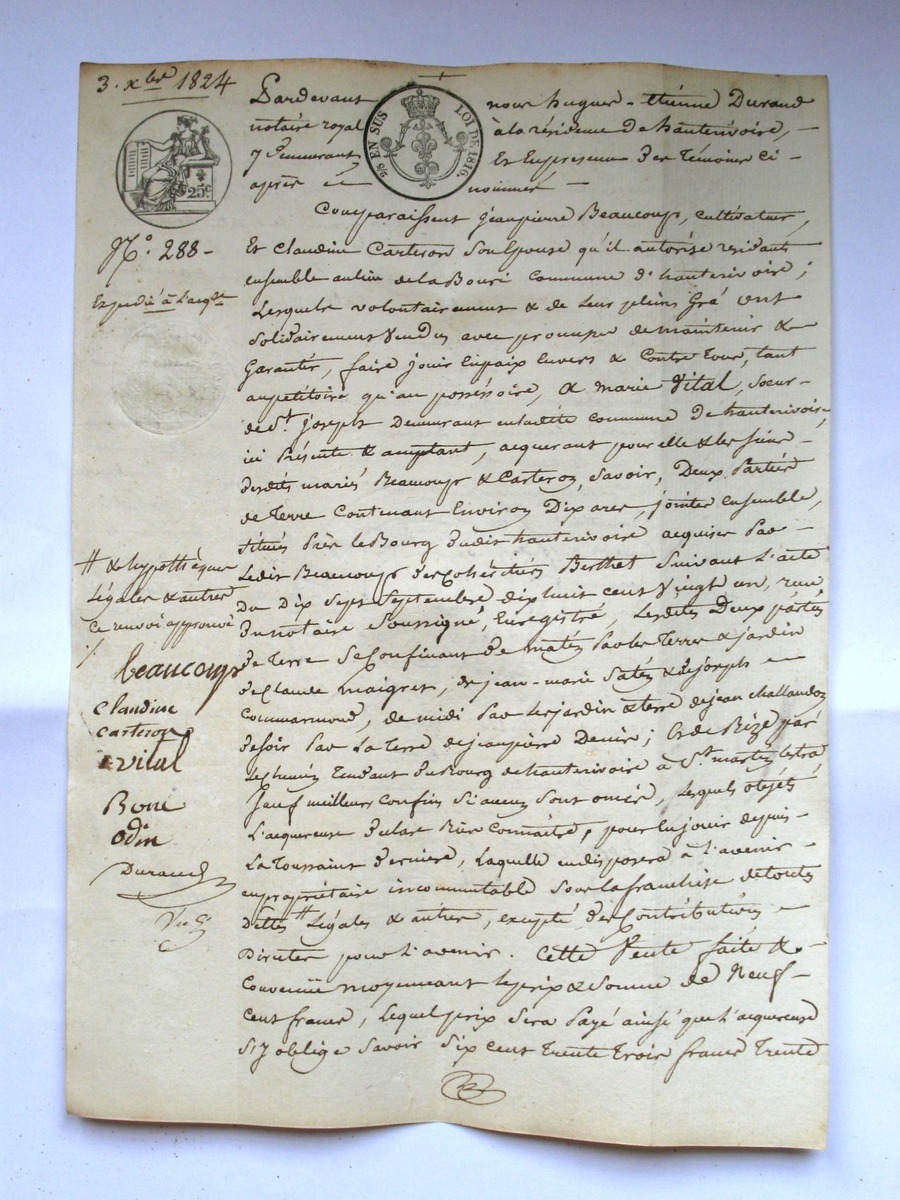 3. xbre 1824
Pardevant nous hugues-étienne Durand
notaire royal à la résidence de hauterivoire,
y Demeurant, Et En presence des témoins ci-
après et nommés
Comparaissent jeanpierre Beaucoup, cultivateur,
Et Claudine Carteron Son Epouse qu'il autorise résidants
ensemble au lieu de la Bouri Commune d'hauterivoire;
Lesquels volontairement & de leur pleins Gré ont
Solidairement Vendu avec promesse de maintenir &
Garantir, faire jouir En paix Envers & Contre Tous, tant
au pétitoire qu'au posséssoire, a marie Vital, Sœur
de St. joseph Demeurant en ladite commune De hauterivoire
ici Présente & acceptant, acquerant pour elle & les siens
desdits mariés Beaucoup & Carteron, Savoir, Deux Parties
de Terre Contenant Environ Dix ares, jointes ensemble,
Situés Près le Bourg dudit hauterivoire acquises Par
Ledit Beaucoup des Cohéritiers Berthet Suivant L'acte
Du Dix Sept Septembre dix huit cent Vingt un, reçu
Du notaire Soussigné, Enregistré, Lesdites Deux parties
de Terre Se Confinant De matin Par les Terres & jardin
de Claude maigret, de jean-marie & de joseph
Commarmond, de midi Par Les jardin & terre de jean Challandon
de Soir Par La Terre de jeanpierre Denis; & de Bize par
Le chemin Tendant du Bourg de hauterivoire à St. martin Lestra
Sauf meilleurs confins Si aucun Sont omis, Lesquels objets
L'acquereuse Dclare Bien Connaître, pour En jouir depuis
La Toussaint derniere, Laquelle en disposera à L'avenir
en propriétaire incommutable Sous la franchise de toutes
Dettes # Légales & autres, excepté des Contributions
Directes pour L'avenir. Cette Vente faite &
Convenue moyennant Le prix & Somme de Neuf
Cent francs, Lequel prix Sera Payé ainsi que L'acquereuse
S'y oblige Savoir Six cent Trente Trois francs Trente
9/5 EN SUS
LOI DE 1816.
25c
No. 288
Expedié à L'acqte
# & hypothèques
Légales & autres
Ce renvoi approuvé
beaucoup
Claudine
carteron
vital
Bone
odin
Durand